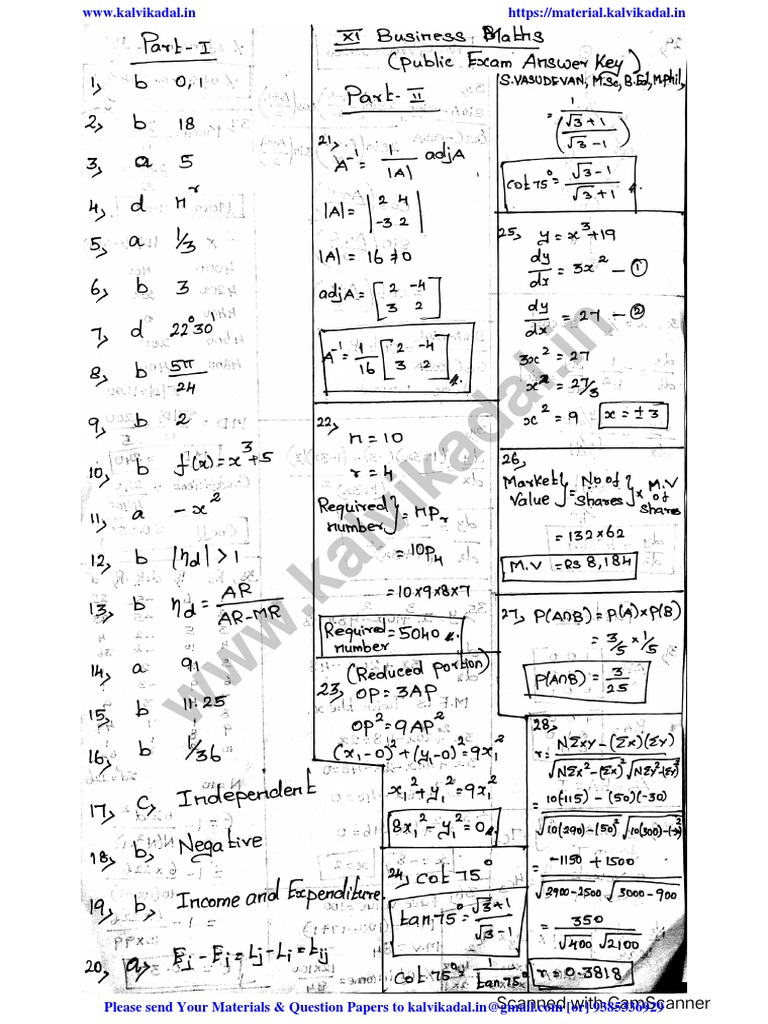 www.kalvikadal.in
https://material.kalvikadal.in
XI Business Maths
(Public Exam Answer Key)
S.VASUDEVAN, M.Sc, B.Ed, M.Phil,
Part-I
1, b 0,1
2, b 18
3, a 5
4, d n^r
5, a 1/3
6, b 3
7, d 22°30'
8, b 5π/24
9, b 2
10, b f(x)=x³+5
11, a -x²
12, b |ηd|>1
13, b ηd = AR/(AR-MR)
14, a 9,
15, b 11.25
16, b 1/36
17, c, Independent
18, b, Negative
19, b, Income and Expenditure
20, a, Ej - Ei = Lj - Li = tij
Part-II
21, A⁻¹ = 1/|A| adjA
|A| = |2 4|
|-3 2|
|A| = 16 ≠ 0
adjA = [2 -4]
[3 2]
A⁻¹ = 1/16 [2 -4]
[3 2]
22,
n = 10
r = 4
Required number } = nPr
= 10P4
= 10×9×8×7
Required number = 5040
(Reduced portion)
23, OP = 3AP
OP² = 9AP²
(x₁-0)² + (y₁-0)² = 9x₁²
x₁² + y₁² = 9x₁²
8x₁² - y₁² = 0
24, cot 75°
tan 75° = (√3+1)/(√3-1)
cot 75° = 1/tan 75°
= 1/((√3+1)/(√3-1))
cot 75° = (√3-1)/(√3+1)
25, y = x³+19
dy/dx = 3x² — ①
dy/dx = 27 — ②
3x² = 27
x² = 27/3
x² = 9 x = ±3
26,
Market Value } = No of shares } × M.V of shares
= 132×62
M.V = Rs 8,184
27, P(A∩B) = P(A)×P(B)
= 3/5 × 1/5
P(A∩B) = 3/25
28,
r = (NΣxy - (Σx)(Σy))/(√(NΣx²-(Σx)²) √(NΣy²-(Σy)²))
= (10(-115) - (50)(-30))/(√(10(290)-(50)²) √(10(300)-(-30)²))
= (-1150 + 1500)/(√(2900-2500) √(3000-900))
= 350/(√400 √2100)
r = 0.3818
www.kalvikadal.in
Please send Your Materials & Question Papers to kalvikadal.in@gmail.com [or] 9385336929
Scanned with CamScanner